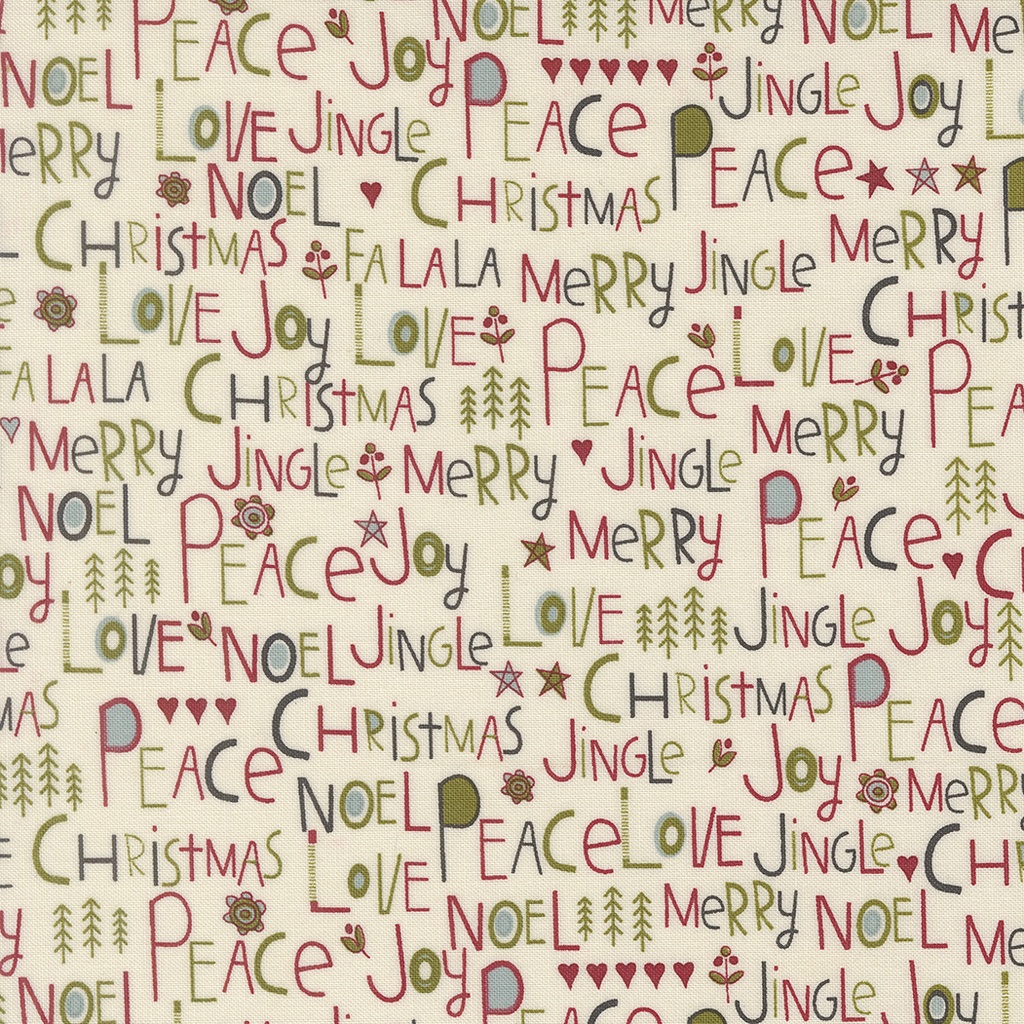 PEACE JOY NOEL MERRY NOEL
NOEL LOVE JINGLE PEACE JINGLE JOY
MERRY NOEL CHRISTMAS PEACE
CHRISTMAS FA LA LA LA MERRY JINGLE MERRY
LOVE JOY LOVE PEACE LOVE CHRIST
FA LA LA LA CHRISTMAS MERRY
MERRY JINGLE MERRY JINGLE
NOEL PEACE JOY MERRY PEACE
LOVE NOEL JINGLE LOVE JINGLE JOY
CHRISTMAS CHRISTMAS PEACE
PEACE JINGLE JOY MERRY
NOEL PEACE LOVE JINGLE
CHRISTMAS LOVE NOEL MERRY NOEL
PEACE JOY
NOEL JINGLE JOY